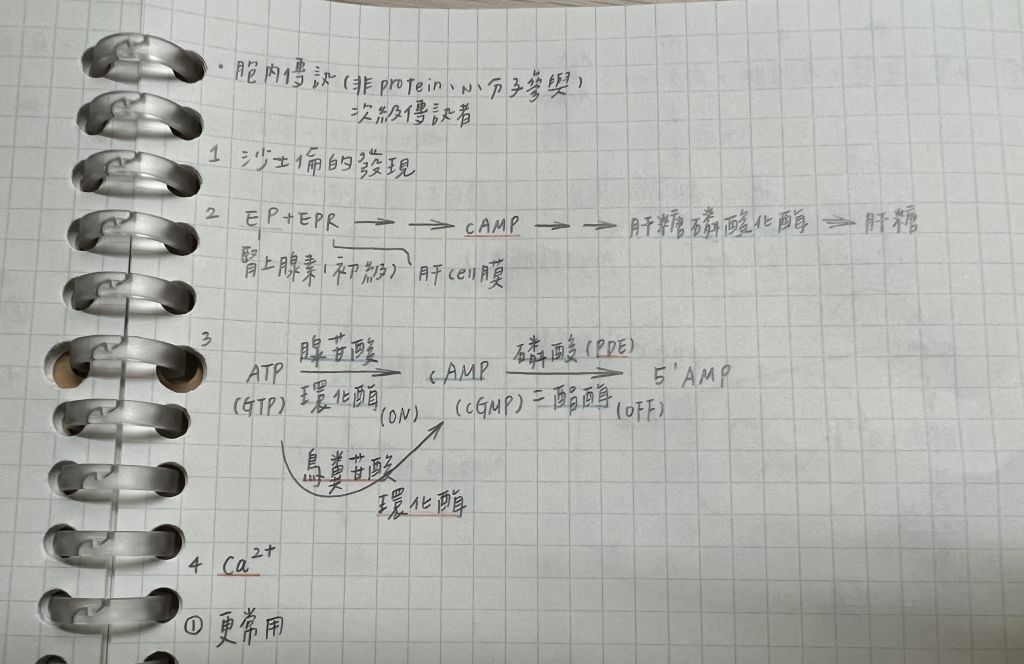 · 胞內傳訊(非protein、小分子參與)
次級傳訊者
1 沙士倫的發現
2 EP+EPR → → cAMP → → 肝糖磷酸化酶 ⇒ 肝糖
腎上腺素(初級) 肝cell膜
3 腺苷酸 磷酸(PDE)
ATP → cAMP → 5'AMP
(GTP) 環化酶(ON) (cGMP) 二酯酶(OFF)
鳥糞苷酸
環化酶
4 Ca²⁺
① 更常用